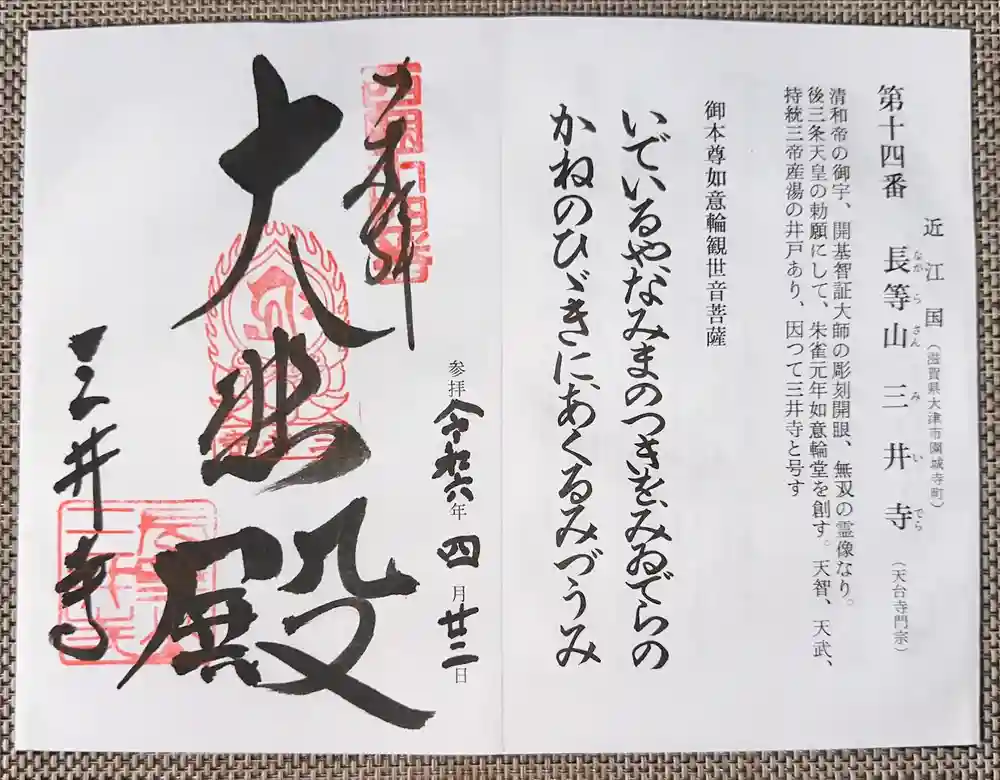 近江国（滋賀県大津市園城寺町）
第十四番 長等山 三井寺（天台寺門宗）
ながらさん みいでら
清和帝の御宇、開基智証大師の彫刻開眼、無双の霊像なり。
後三条天皇の勅願にして、朱雀元年如意輪堂を創す。天智、天武、
持統三帝産湯の井戸あり、因つて三井寺と号す
御本尊如意輪観世音菩薩
いでいるや、なみまのつきを、みゐでらの
かねのひゞきに、あくるみづうみ
奉拝
西国十四番
参拝 令和六年 四月 廿三日
大悲殿
三井寺